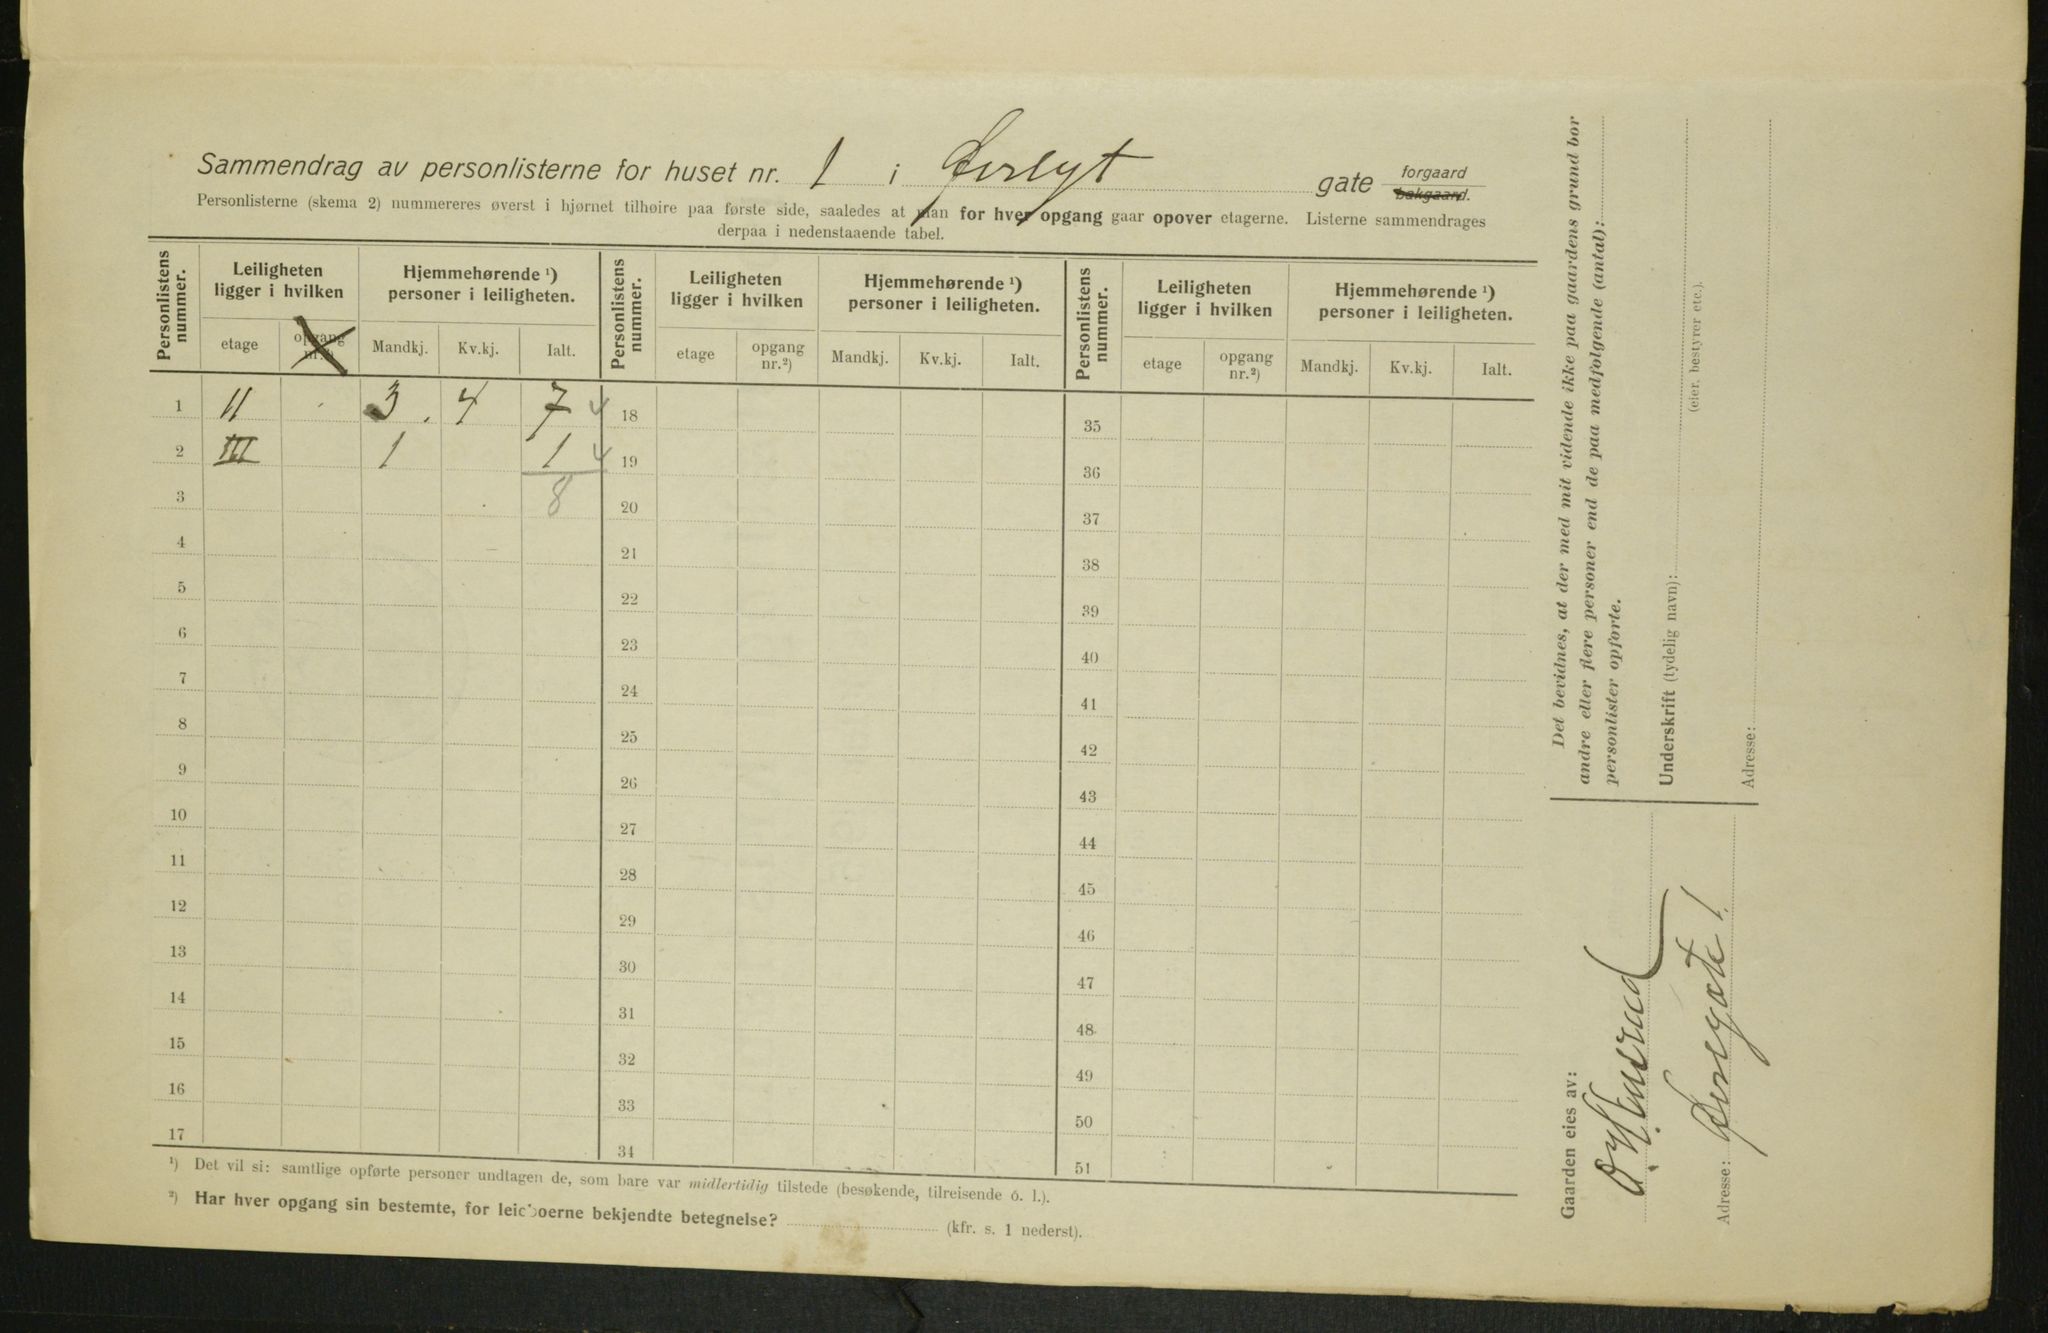 Sammendrag av personlisterne for huset nr. 1 i gate forgaard bakgaard.
Personlisterne (skema 2) nummereres øverst i hjørnet tilhøire paa første side, saaledes at man for hver opgang gaar opover etagerne. Listerne sammendrages
derpaa i nedenstaaende tabel.
Personlistens nummer. Leiligheten ligger i hvilken Hjemmehørende ¹) personer i leiligheten. Personlistens nummer. Leiligheten ligger i hvilken Hjemmehørende ¹) personer i leiligheten. Personlistens nummer. Leiligheten ligger i hvilken Hjemmehørende ¹) personer i leiligheten.
etage opgang nr.²) Mandkj. Kv.kj. Ialt. etage opgang nr.²) Mandkj. Kv.kj. Ialt. etage opgang nr.²) Mandkj. Kv.kj. Ialt.
1 II 3 4 7 4 18 35
2 III 1 1 4 19 36
3 8 20 37
4 21 38
5 22 39
6 23 40
7 24 41
8 25 42
9 26 43
10 27 44
11 28 45
12 29 46
13 30 47
14 31 48
15 32 49
16 33 50
17 34 51
¹) Det vil si: samtlige opførte personer undtagen de, som bare var midlertidig tilstede (besøkende, tilreisende o. l.).
²) Har hver opgang sin bestemte, for leieboerne bekjendte betegnelse? (kfr. s. 1 nederst).
Det bevidnes, at der med mit vidende ikke paa gaardens grund bor
andre eller flere personer end de paa medfølgende (antal):
personlister opførte.
Underskrift (tydelig navn):
(eier, bestyrer etc.).
Adresse:
Gaarden eies av:
Adresse: 1